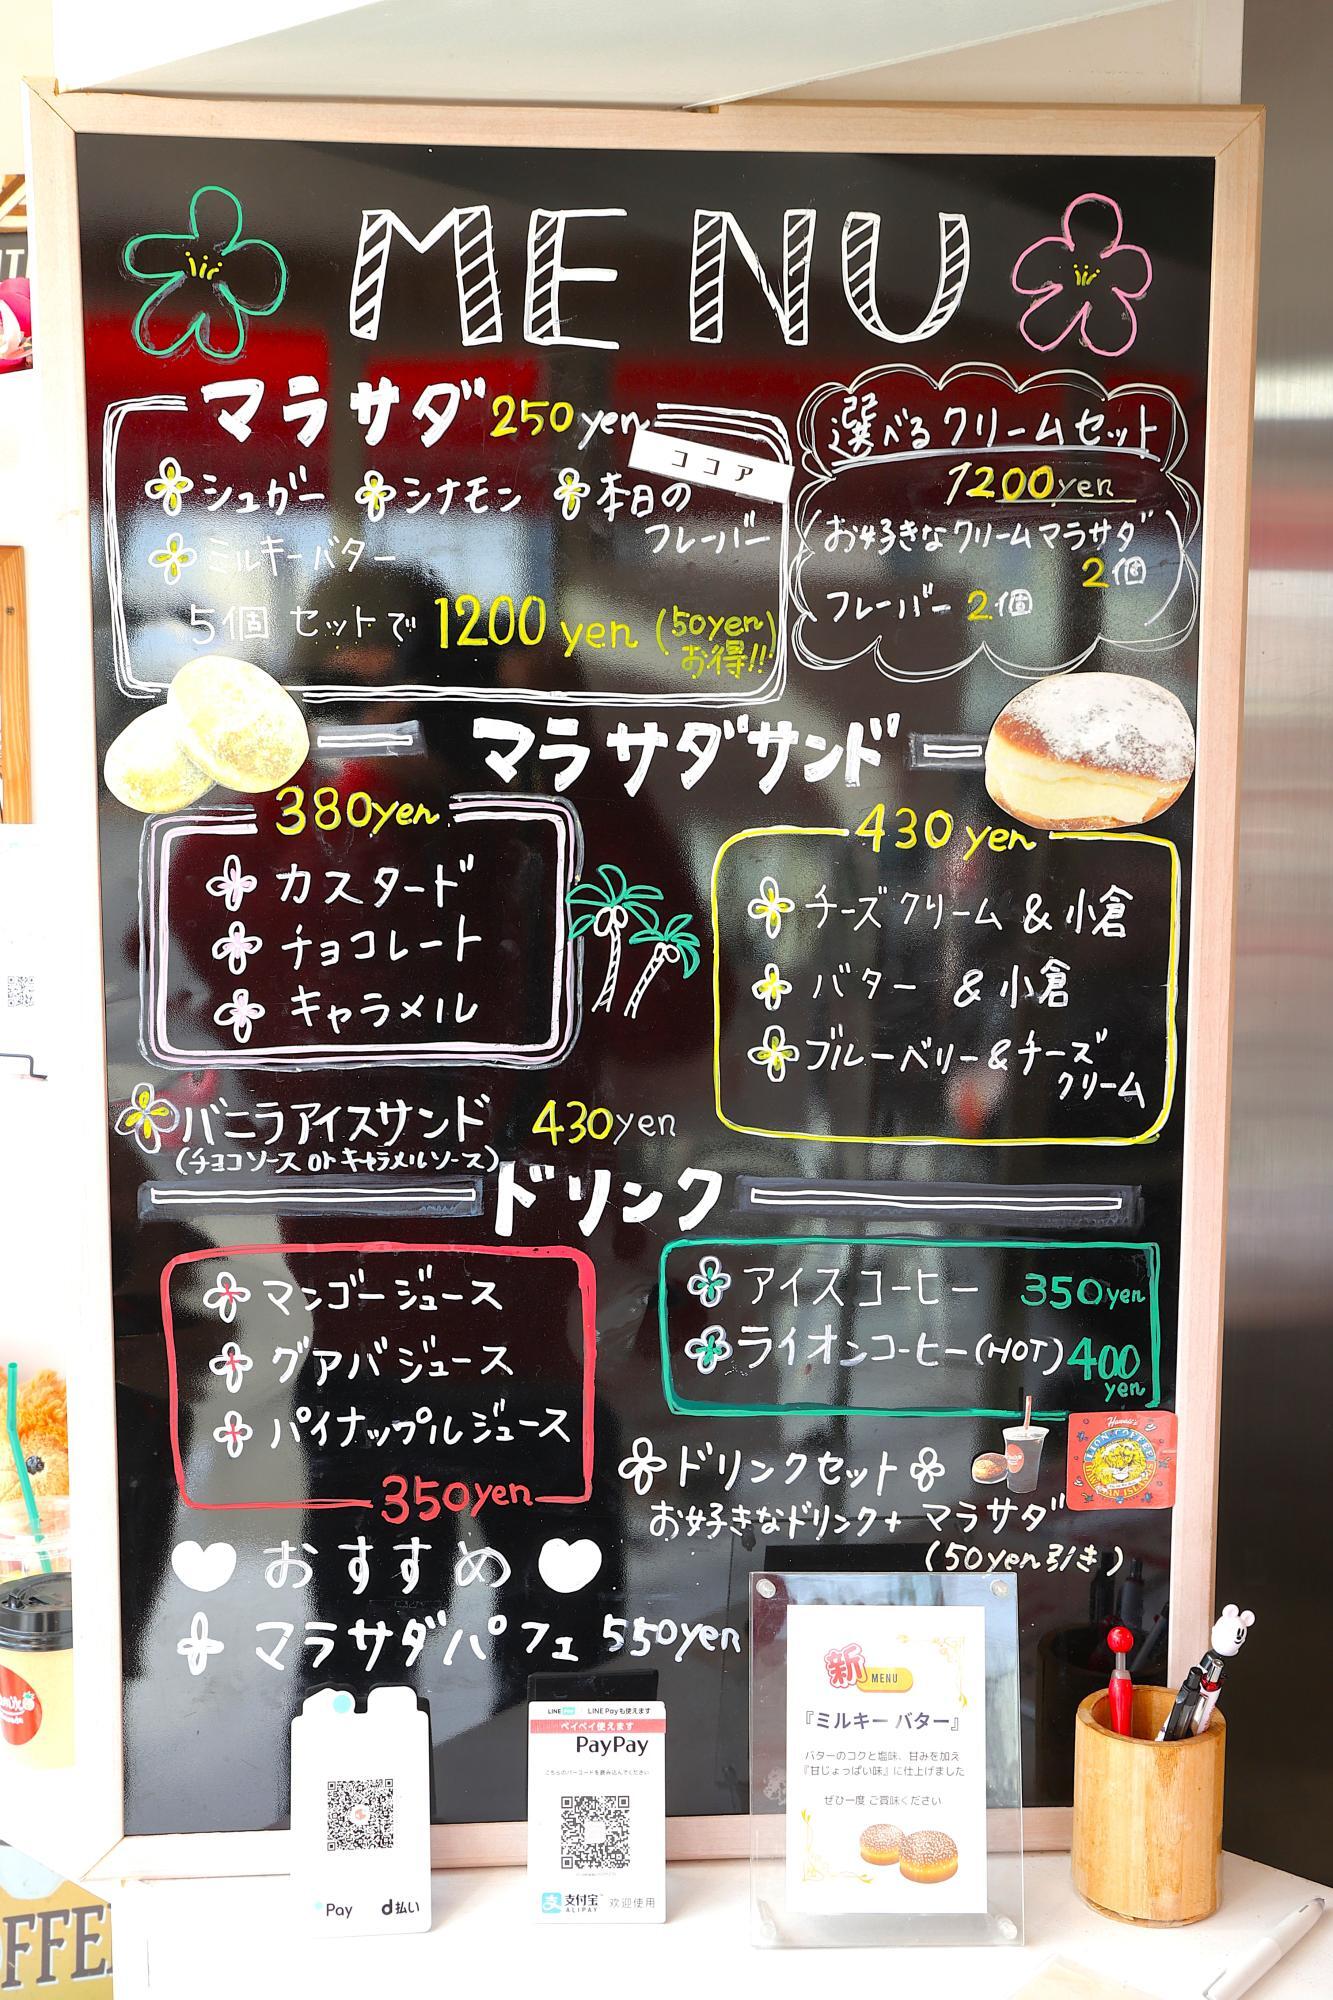 MENU
マラサダ 250yen
ココア
シュガー シナモン 本日の
フレーバー
ミルキーバター
5個 セットで 1200 yen (50yen
お得!!)
選べるクリームセット
1200yen
(お好きなクリームマラサダ
2個
フレーバー 2個)
マラサダサンド
380yen
カスタード
チョコレート
キャラメル
430 yen
チーズクリーム & 小倉
バター & 小倉
ブルーベリー & チーズ
クリーム
バニラアイスサンド 430yen
(チョコソース or キャラメルソース)
ドリンク
マンゴージュース
グアバジュース
パイナップルジュース
350yen
アイスコーヒー 350yen
ライオンコーヒー(HOT) 400
yen
ドリンクセット
お好きなドリンク+ マラサダ
(50yen引き)
Hawaii's
LION COFFEE
おすすめ
マラサダパフェ 550yen
新 MENU
『ミルキー バター』
バターのコクと塩味、甘みを加え
『甘じょっぱい味』に仕上げました
ぜひ一度 ご賞味ください
LINE Pay LINE Payも使えます
ペイペイ使えます
PayPay
こちらのバーコードを読み込んでください
支付宝 欢迎使用
ALIPAY
Pay d払い
OFFE